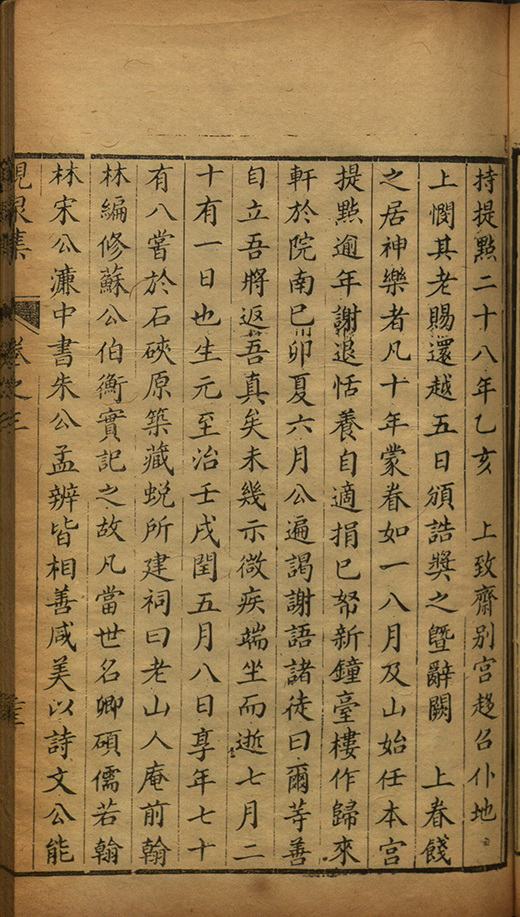 持提點二十八年乙亥　上致齋別宮趍召仆地
上憫其老賜還越五日頒誥奬之曁辭闕　上眷餞
之居神樂者凡十年蒙眷如一八月及山始任本宮
提點逾年謝退恬養自適捐已帑新鐘臺樓作歸來
軒於院南已卯夏六月公遍謁謝語諸徒曰爾等善
自立吾將返吾真矣未幾示微疾端坐而逝七月二
十有一日也生元至治壬戌閏五月八日享年七十
有八嘗於石硤原築藏蛻所建祠曰老山人庵前翰
林編修蘇公伯衡實記之故凡當世名卿碩儒若翰
林宋公濂中書朱公孟辨皆相善咸美以詩文公能
峴泉集　卷之三